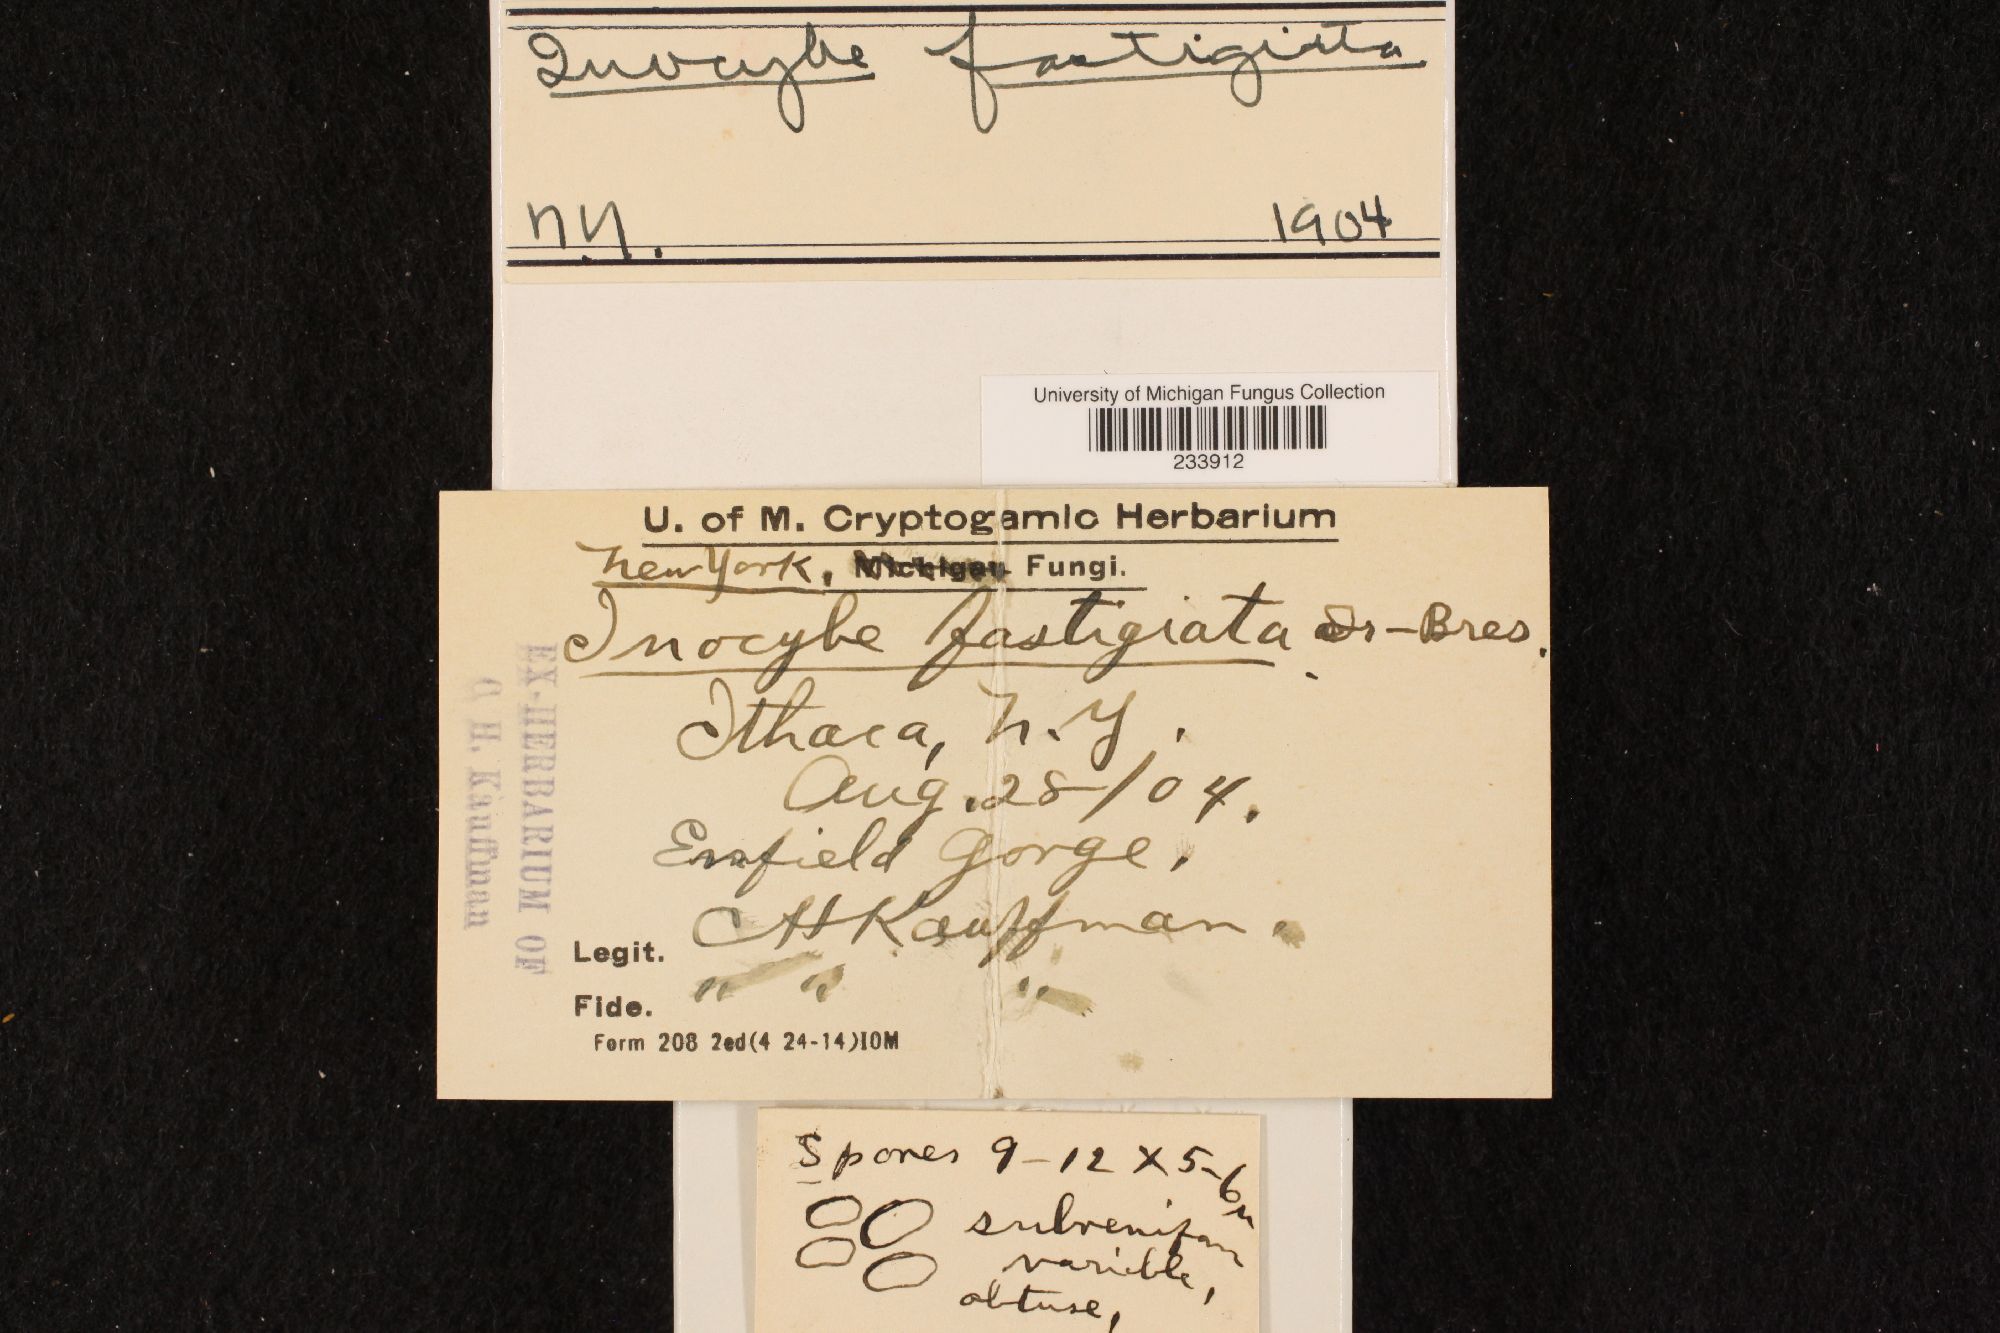 Inocybe fastigiata
N.Y. 1904
University of Michigan Fungus Collection
233912
U. of M. Cryptogamic Herbarium
New York, Michigan Fungi.
Inocybe fastigiata Fr-Bres.
Ithaca, N.Y.
Aug. 28-/04.
Enfield Gorge.
Legit. CHKauffman.
Fide. " " "
Form 208 2ed(4 24-14)IOM
EX-HERBARIUM OF
C. H. Kauffman
Spores 9-12 X 5-6u
subreniform
variable,
obtuse,